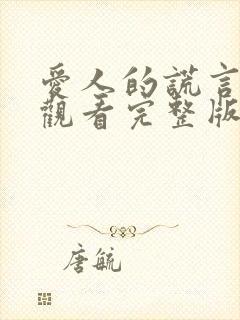 愛人的謊言
觀看完整版
唐毓